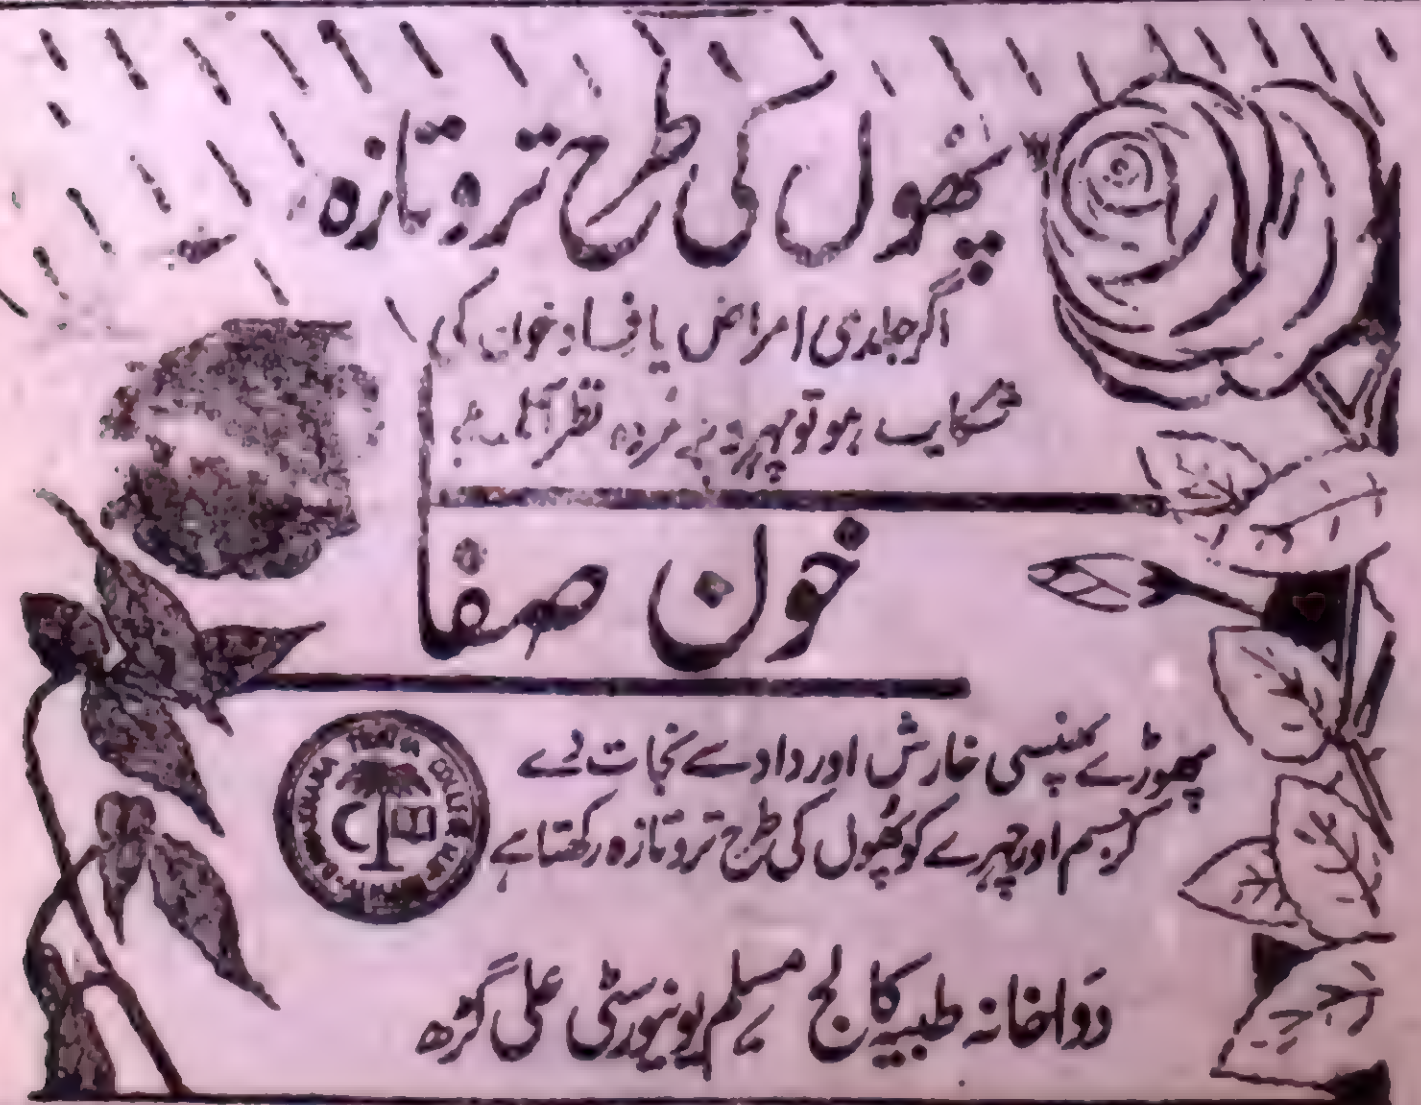 پھول کی طرح تر و تازہ
اگر جلدی امراض یا فساد خون کی
شکایت ہو تو چہرہ پژمردہ نظر آتا ہے
خون صفا
پھوڑے پھنسی خارش اور داد سے نجات دے
کر جسم اور چہرے کو پھول کی طرح تر و تازہ رکھتا ہے
دواخانہ طبیہ کالج مسلم یونیورسٹی علی گڑھ
DAWAKHANA TIBBIYA COLLEGE M.U.